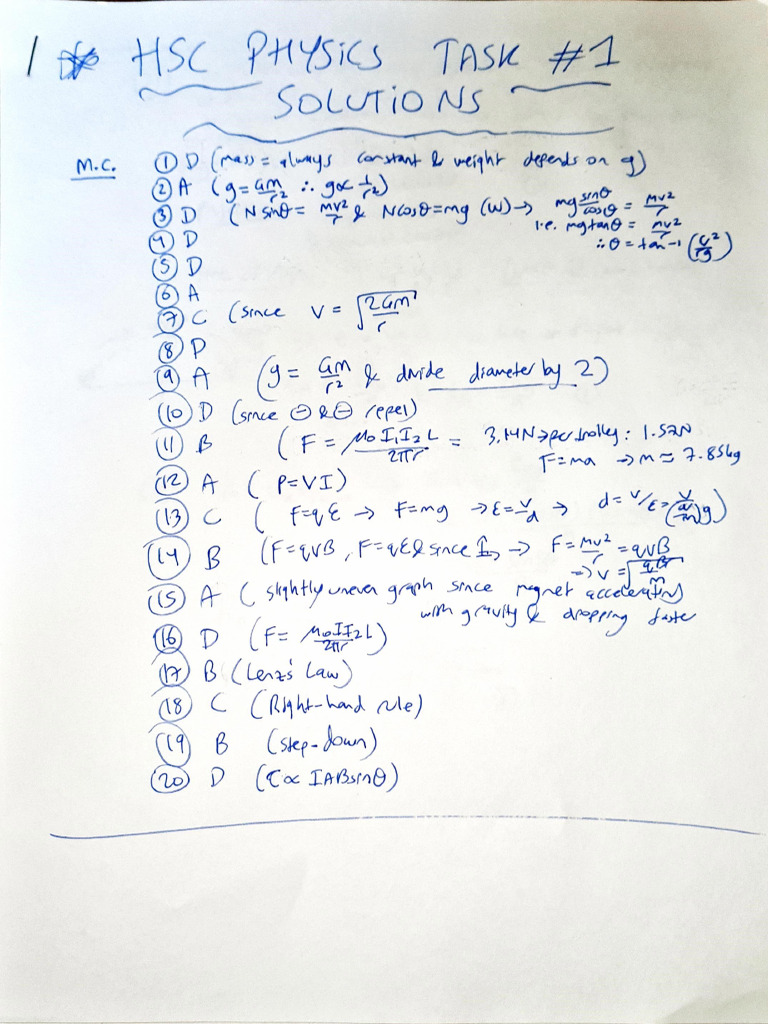 1 HSC PHYSICS TASK #1
SOLUTIONS
M.C. ① D (mass = always constant & weight depends on g)
② A (g = GM/r² ∴ g ∝ 1/r²)
③ D (N sinθ = mv²/r & N cosθ = mg (W) → mg sinθ/cosθ = mv²/r
i.e. mg tanθ = mv²/r
④ D ∴ θ = tan⁻¹ (v²/rg)
⑤ D
⑥ A
⑦ C (since v = √2GM/r
⑧ D
⑨ A (g = GM/r² & divide diameter by 2)
⑩ D (since ⊖ & ⊖ repel)
⑪ B (F = μ₀I₁I₂L/2πr = 3.14N → per trolley: 1.57N
F = ma → m ≈ 7.85kg
⑫ A (P = VI)
⑬ C ( F = qE → F = mg → E = V/d → d = V/E =
⑭ B (F = qvB, F = qE & since → F = mv²/r = qvB
→ v = √
⑮ A (slightly uneven graph since magnet accelerating
with gravity & dropping faster
⑯ D (F = μ₀I I₂L/2πr)
⑰ B (Lenz's Law)
⑱ C (Right-hand rule)
⑲ B (step-down)
⑳ D (τ ∝ IABsinθ)